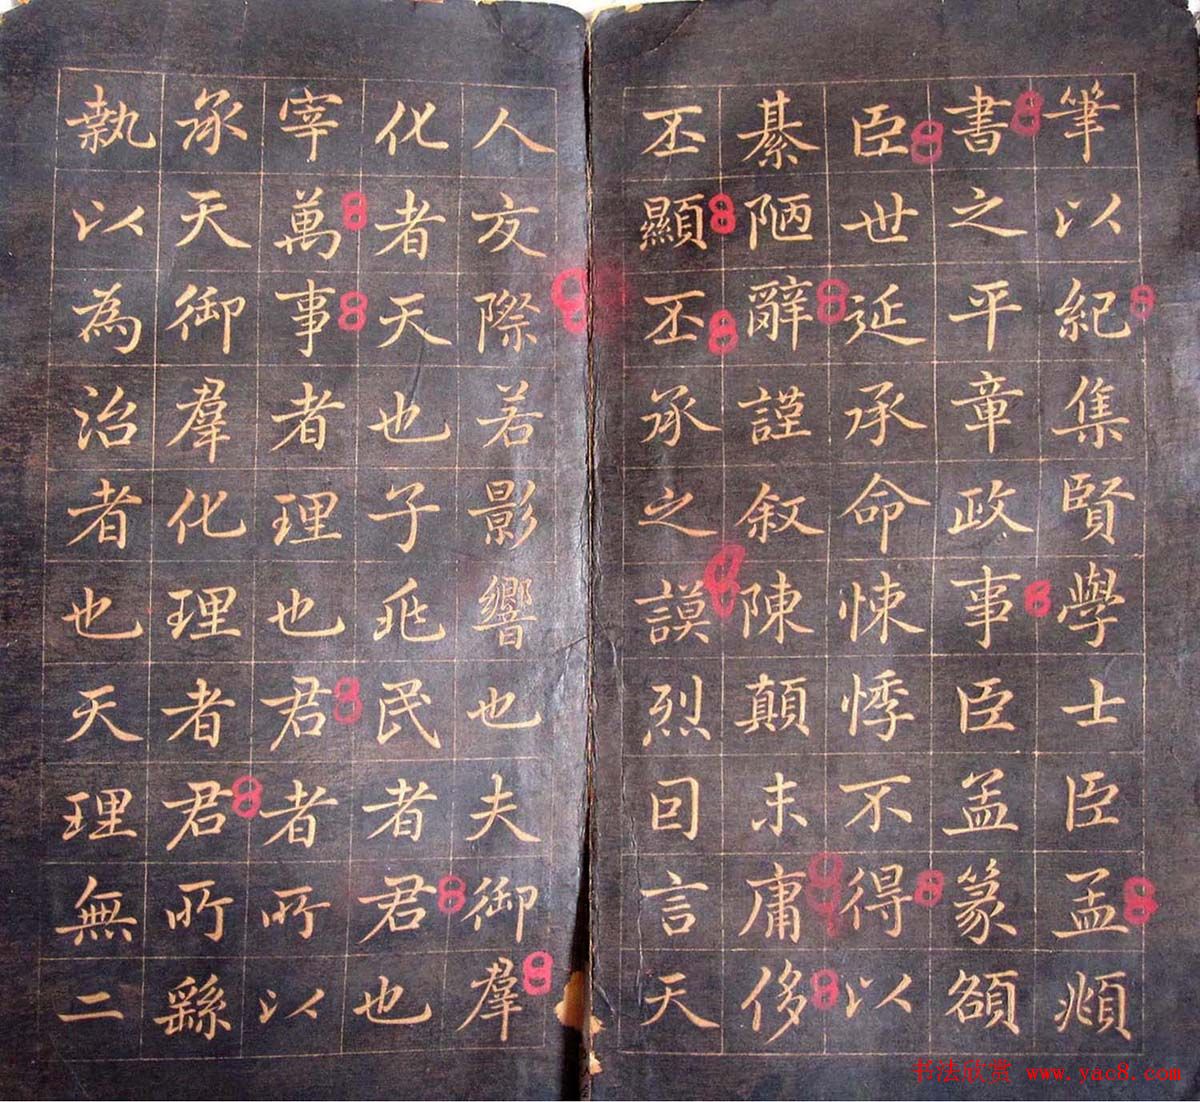 筆以紀集賢學士臣孟頫
書之平章政事臣孟篆額
臣世延承命悚悸不得以
綦陋辭謹叙陳顛末庸侈
丕顯丕承之謨烈囙言天
人交際若影響也夫御羣
化者天也子兆民者君也
宰萬事者理也君者所以
承天御羣化理者君所繇
執以為治者也天理無二
书法欣赏 www.yac8.com